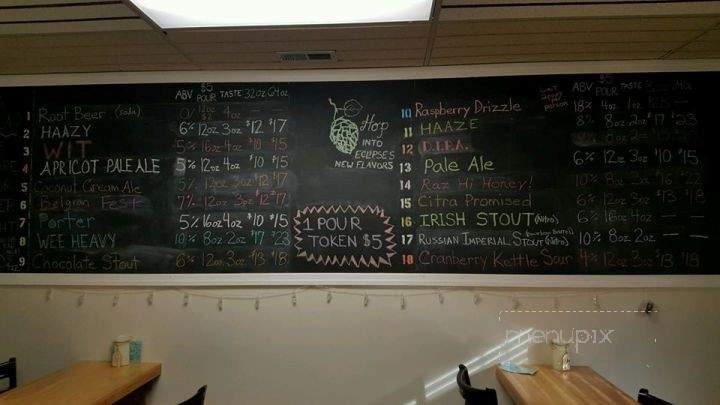 ABV $5 POUR TASTE 32oz 64oz
1 Root Beer (soda) 12oz 4oz — —
2 HAAZY 6% 12oz 3oz $12 $17
3 WIT 5% 16oz 4oz $10 $15
4 APRICOT PALE ALE 5% 12oz 4oz $10 $15
5 Coconut Cream Ale 5% 12oz 3oz $12 $17
6 Belgian Fest 7% 12oz 3oz $12 $17
7 Porter 5% 16oz 4oz $10 $15
8 WEE HEAVY 10% 8oz 2oz $17 $23
9 Chocolate Stout 6% 12oz 3oz $13 $18
Hop
INTO
ECLIPSE'S
NEW FLAVORS
1 POUR
TOKEN $5
ABV $5 POUR TASTE
10 Raspberry Drizzle 18% 4oz 1oz
11 HAAZE 8% 8oz 2oz $17 $23
12 D.I.P.A.
13 Pale Ale 6% 12oz 3oz $10 $15
14 Raz Hi Honey! 10% 8oz 2oz
15 Citra Promised 6% 12oz 3oz $13 $18
16 IRISH STOUT (Nitro) 6% 16oz 4oz — —
17 RUSSIAN IMPERIAL STOUT (Nitro) 10% 8oz 2oz — —
18 Cranberry Kettle Sour 4% 12oz 3oz $13 $18
menupix